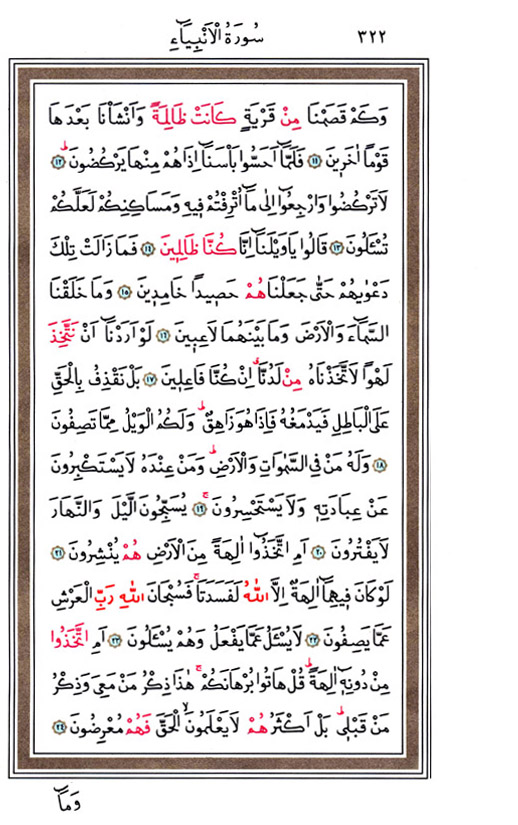 ٣٢٢ سُورَةُ الْاَنْبِيَٓاءِ
وَكَمْ قَصَمْنَا مِنْ قَرْيَةٍ كَانَتْ ظَالِمَةً وَاَنْشَأْنَا بَعْدَهَا
قَوْمًا اٰخَر۪ينَ ﴿١١﴾ فَلَمَّٓا اَحَسُّوا بَأْسَنَٓا اِذَا هُمْ مِنْهَا يَرْكُضُونَۜ ﴿١٢﴾
لَا تَرْكُضُوا وَارْجِعُٓوا اِلٰى مَٓا اُتْرِفْتُمْ ف۪يهِ وَمَسَاكِنِكُمْ لَعَلَّكُمْ
تُسْـَٔلُونَ ﴿١٣﴾ قَالُوا يَا وَيْلَنَٓا اِنَّا كُنَّا ظَالِم۪ينَ ﴿١٤﴾ فَمَا زَالَتْ تِلْكَ
دَعْوٰيهُمْ حَتّٰى جَعَلْنَاهُمْ حَص۪يدًا خَامِد۪ينَ ﴿١٥﴾ وَمَا خَلَقْنَا
السَّمَٓاءَ وَالْاَرْضَ وَمَا بَيْنَهُمَا لَاعِب۪ينَ ﴿١٦﴾ لَوْ اَرَدْنَٓا اَنْ نَتَّخِذَ
لَهْوًا لَاتَّخَذْنَاهُ مِنْ لَدُنَّاۗ اِنْ كُنَّا فَاعِل۪ينَ ﴿١٧﴾ بَلْ نَقْذِفُ بِالْحَقِّ
عَلَى الْبَاطِلِ فَيَدْمَغُهُ فَاِذَا هُوَ زَاهِقٌۜ وَلَكُمُ الْوَيْلُ مِمَّا تَصِفُونَ
﴿١٨﴾ وَلَهُ مَنْ فِي السَّمٰوَاتِ وَالْاَرْضِۜ وَمَنْ عِنْدَهُ لَا يَسْتَكْبِرُونَ
عَنْ عِبَادَتِه۪ وَلَا يَسْتَحْسِرُونَۚ ﴿١٩﴾ يُسَبِّحُونَ الَّيْلَ وَالنَّهَارَ
لَا يَفْتُرُونَ ﴿٢٠﴾ اَمِ اتَّخَذُٓوا اٰلِهَةً مِنَ الْاَرْضِ هُمْ يُنْشِرُونَ ﴿٢١﴾
لَوْ كَانَ ف۪يهِمَٓا اٰلِهَةٌ اِلَّا اللّٰهُ لَفَسَدَتَاۚ فَسُبْحَانَ اللّٰهِ رَبِّ الْعَرْشِ
عَمَّا يَصِفُونَ ﴿٢٢﴾ لَا يُسْـَٔلُ عَمَّا يَفْعَلُ وَهُمْ يُسْـَٔلُونَ ﴿٢٣﴾ اَمِ اتَّخَذُوا
مِنْ دُونِه۪ٓ اٰلِهَةًۜ قُلْ هَاتُوا بُرْهَانَكُمْۚ هٰذَا ذِكْرُ مَنْ مَعِيَ وَذِكْرُ
مَنْ قَبْل۪يۜ بَلْ اَكْثَرُهُمْ لَا يَعْلَمُونَۙ الْحَقَّ فَهُمْ مُعْرِضُونَ ﴿٢٤﴾
وَمَٓا